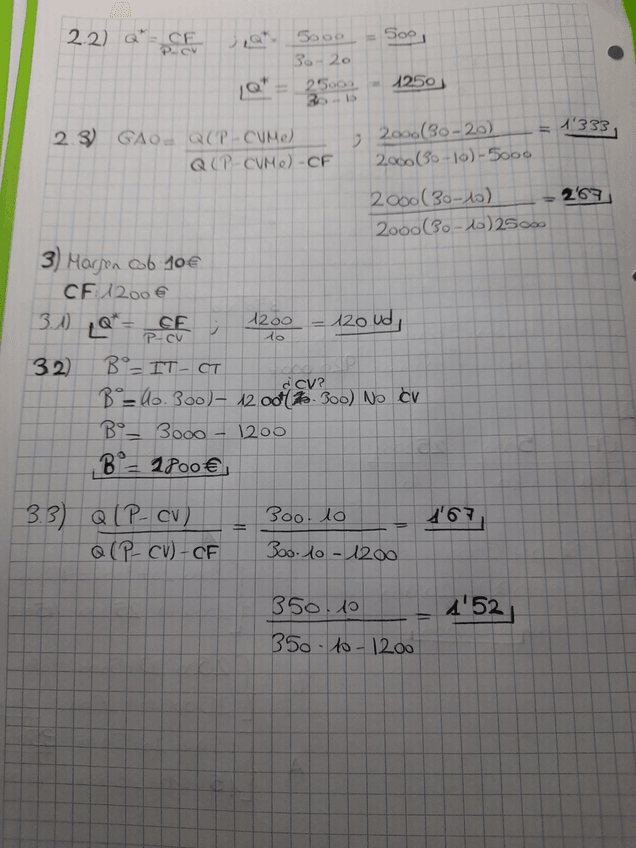 2.2) Q* = CF / P-CV ; Q* = 5000 / 30-20 = 500
Q* = 25000 / 30-10 = 1250
2.3) GAO = Q(P-CVMe) / Q(P-CVMe)-CF ; 2000(30-20) / 2000(30-10)-5000 = 1'333
2000(30-10) / 2000(30-10)25000 = 2'67
3) Margen cob 10€
CF: 1200€
3.1) Q* = CF / P-CV ; 1200 / 10 = 120 ud
3.2) Bº = IT - CT
¿CV?
Bº = (10.300) - 1200 ( .300) No CV
Bº = 3000 - 1200
Bº = 1800€
3.3) Q(P-CV) / Q(P-CV)-CF = 300·10 / 300·10-1200 = 1'67
350·10 / 350·10-1200 = 1'52